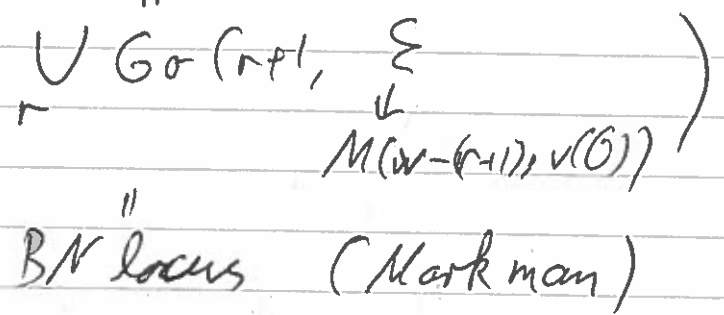 "
∪ Gr (r+1, ℰ )
r ↓
M(v-(r+1), v(O))
"
BN locus (Markman)